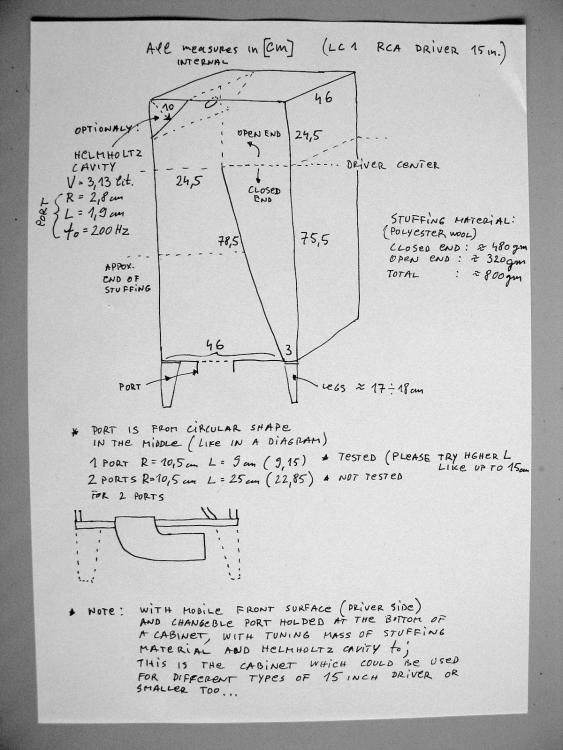 All measures in [cm] (LC1 RCA DRIVER 15 in.)
INTERNAL
46
10
OPTIONALY:
OPEN END
24,5
HELMHOLTZ
CAVITY
V = 3,13 lit.
R = 2,8 cm
L = 1,9 cm
fo = 200 Hz
PORT
DRIVER CENTER
24,5
CLOSED
END
STUFFING MATERIAL:
(POLYESTER WOOL)
CLOSED END : ≈ 480 gm
OPEN END : ≈ 320 gm
TOTAL : ≈ 800 gm
78,5
75,5
APPOX.
END OF
STUFFING
46
3
PORT
LEGS ≈ 17 ÷ 18 cm
* PORT IS FROM CIRCULAR SHAPE
IN THE MIDDLE (LIKE IN A DIAGRAM)
1 PORT R = 10,5 cm L = 9 cm (9,15) * TESTED (PLEASE TRY HGHER L
LIKE UP TO 15 cm
2 PORTS R = 10,5 cm L = 25 cm (22,85) * NOT TESTED
FOR 2 PORTS
* NOTE : WITH MOBILE FRONT SURFACE (DRIVER SIDE)
AND CHANGEBLE PORT HOLDED AT THE BOTTOM OF
A CABINET, WITH TUNING MASS OF STUFFING
MATERIAL AND HELMHOLTZ CAVITY fo;
THIS IS THE CABINET WHICH COULD BE USED
FOR DIFFERENT TYPES OF 15 INCH DRIVER OR
SMALLER TOO...